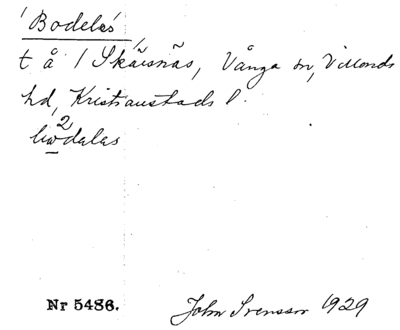 'Bodelás'
t å 1 Skäisnäs, Vånga sn, Villands
hd, Kristianstads l.
2
bwdalas
Nr 5486.
John Svensson 1929